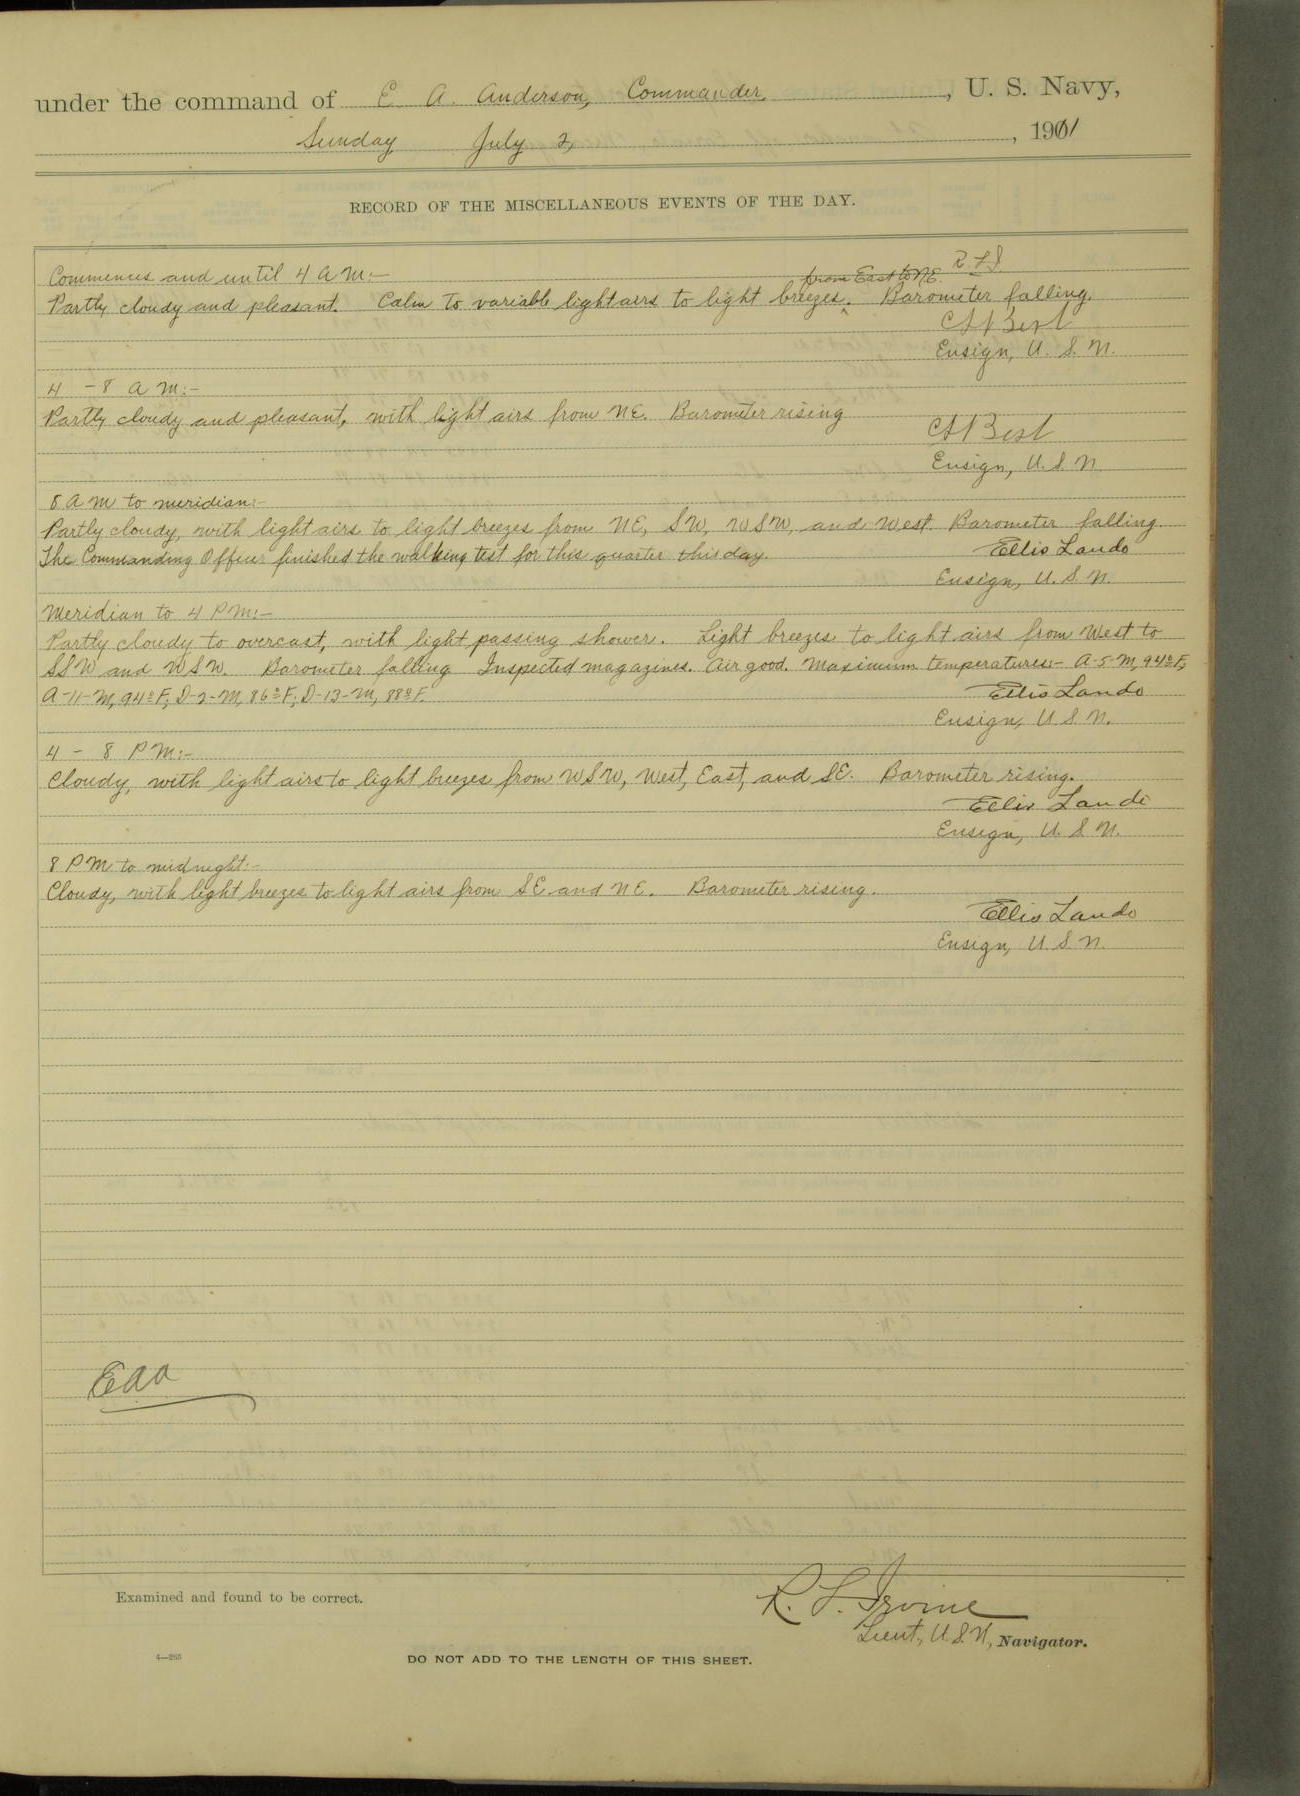 under the command of E. A. Anderson, Commander, U. S. Navy,
Sunday July 2, 1911
RECORD OF THE MISCELLANEOUS EVENTS OF THE DAY.
Commences and until 4 A M:-
from East to NE. R L I
Partly cloudy and pleasant. Calm to variable light airs to light breezes. Barometer falling.
C H Best
Ensign, U. S. N.
4 - 8 A M:-
Partly cloudy and pleasant, with light airs from NE. Barometer rising
C H Best
Ensign, U. S. N
8 A M to meridian:-
Partly cloudy, with light airs to light breezes from NE, SW, WSW, and West. Barometer falling
The Commanding Officer finished the walking test for this quarter this day. Ellis Lando
Ensign, U. S. N.
Meridian to 4 P M:-
Partly cloudy to overcast, with light passing shower. Light breezes to light airs from West to
SSW and WSW. Barometer falling Inspected magazines. Air good. Maximum temperatures:- A-5-M, 94°F;
A-11-M, 94°F; D-2-M, 86°F; D-13-M, 88°F. Ellis Lando
Ensign, U. S. N.
4 - 8 P M:-
Cloudy, with light airs to light breezes from WSW, West, East, and SE. Barometer rising.
Ellis Lando
Ensign, U. S. N.
8 P M to midnight:-
Cloudy, with light breezes to light airs from SE and NE. Barometer rising.
Ellis Lando
Ensign, U. S. N.
Eaa
Examined and found to be correct.
R. L. Irvine
Lieut, U.S.N, Navigator.
4—265
DO NOT ADD TO THE LENGTH OF THIS SHEET.